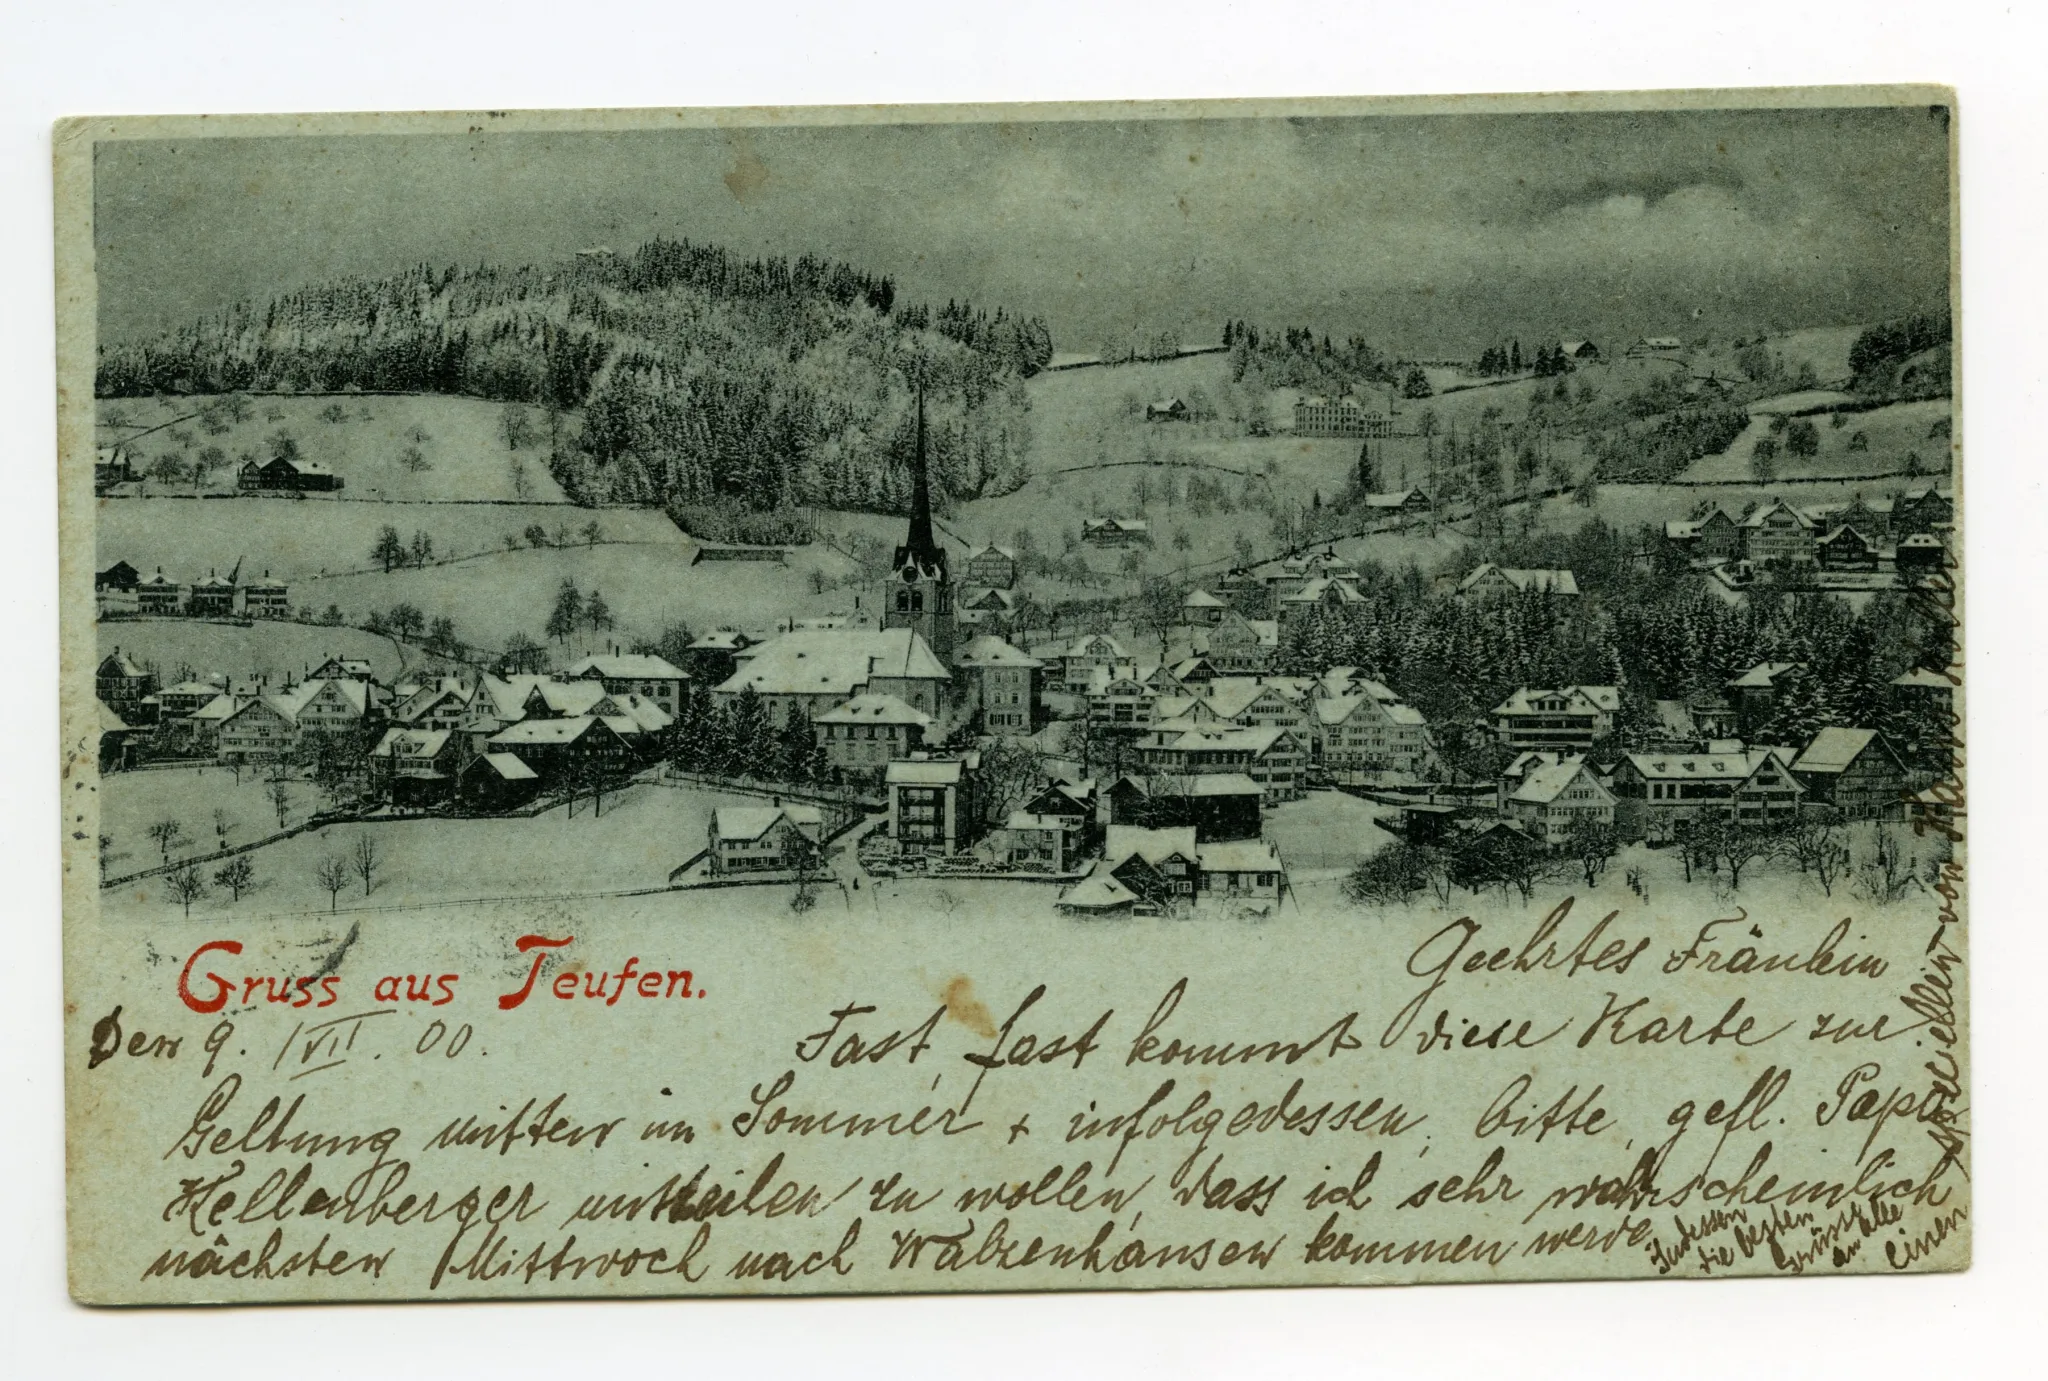 Gruss aus Teufen.
Den 9. VII. 00.
Geehrtes Fräulein
Fast, fast kommt diese Karte zur
Geltung mitten im Sommer + infolgedessen, bitte, gefl. Papa
Kellenberger mitteilen zu wollen, dass ich sehr wahrscheinlich
nächsten Mittwoch nach Walzenhausen kommen werde
Indessen
die besten
Grüsse
an alle
einen
speziellen von Hans Hohl